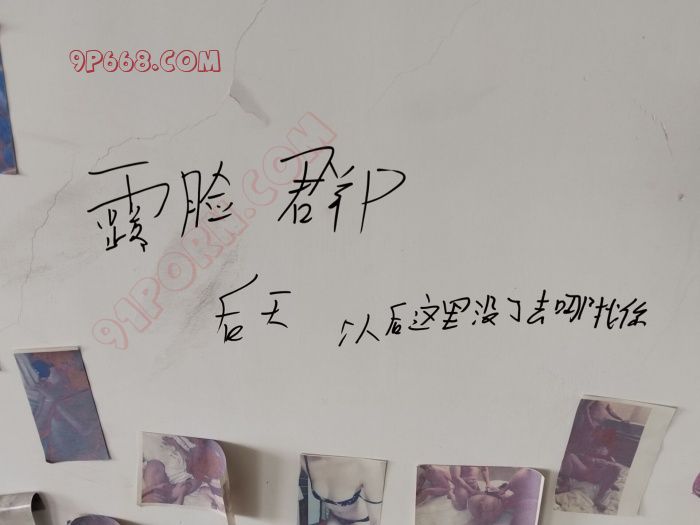 9P668.COM
91PORN.COM
露脸 群P
后天 以后这里没了去哪找你